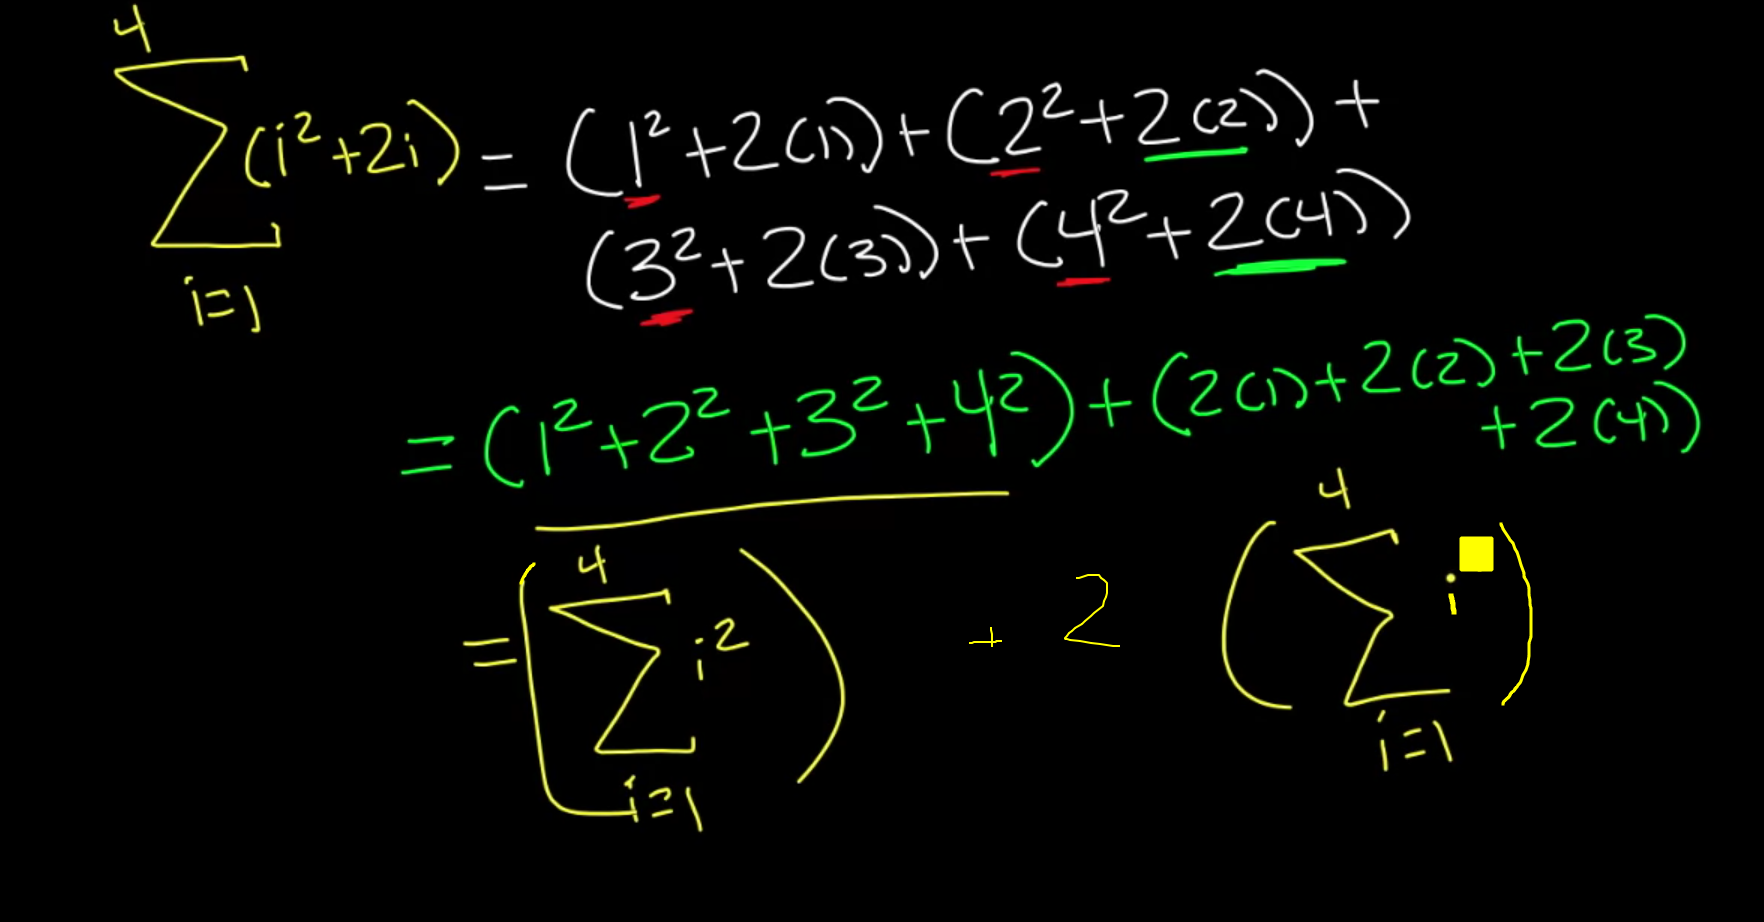 4
∑ (i² + 2i) = (1² + 2(1)) + (2² + 2(2)) +
i=1
(3² + 2(3)) + (4² + 2(4))
= (1² + 2² + 3² + 4²) + (2(1) + 2(2) + 2(3)
+ 2(4))
4 4
= (∑ i²) + 2 (∑ i)
i=1 i=1